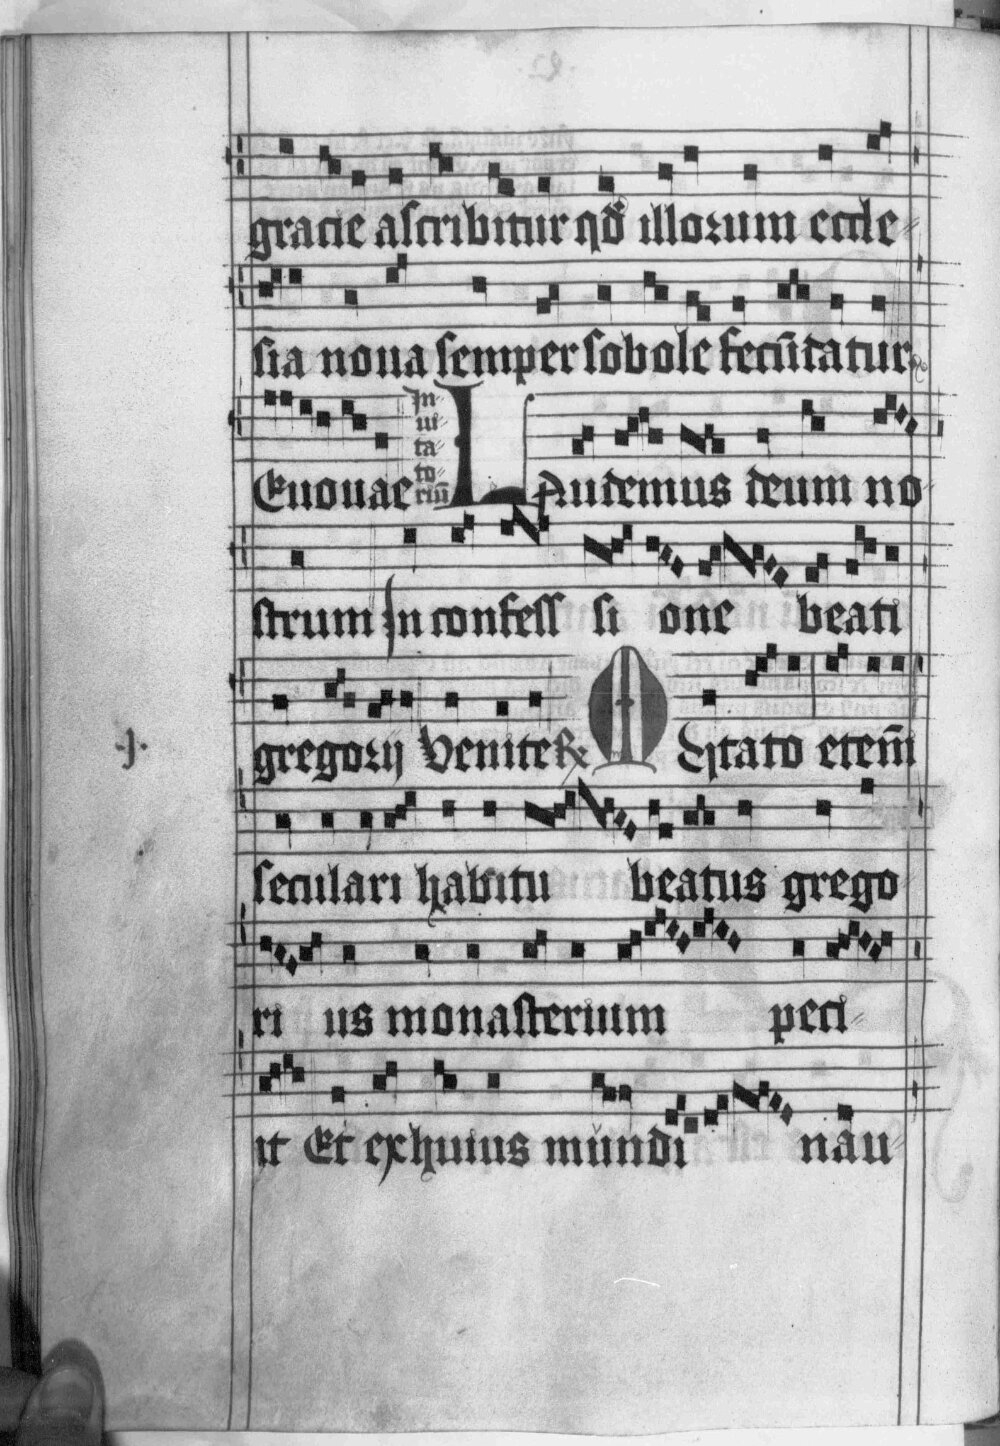 gracie ascribitur qđ illorum eccle⸗
sia noua semper sobole fecūdatur
Euouae In⸗ ui⸗ ta⸗ to⸗ riū LAudemus deum no⸗
strum In confess si one beati
gregorij Venite ℟ MUtato eteni̅
.j.
seculari habitu beatus grego⸗
ri us monasterium peci⸗
it Et ex huius mundi nau⸗